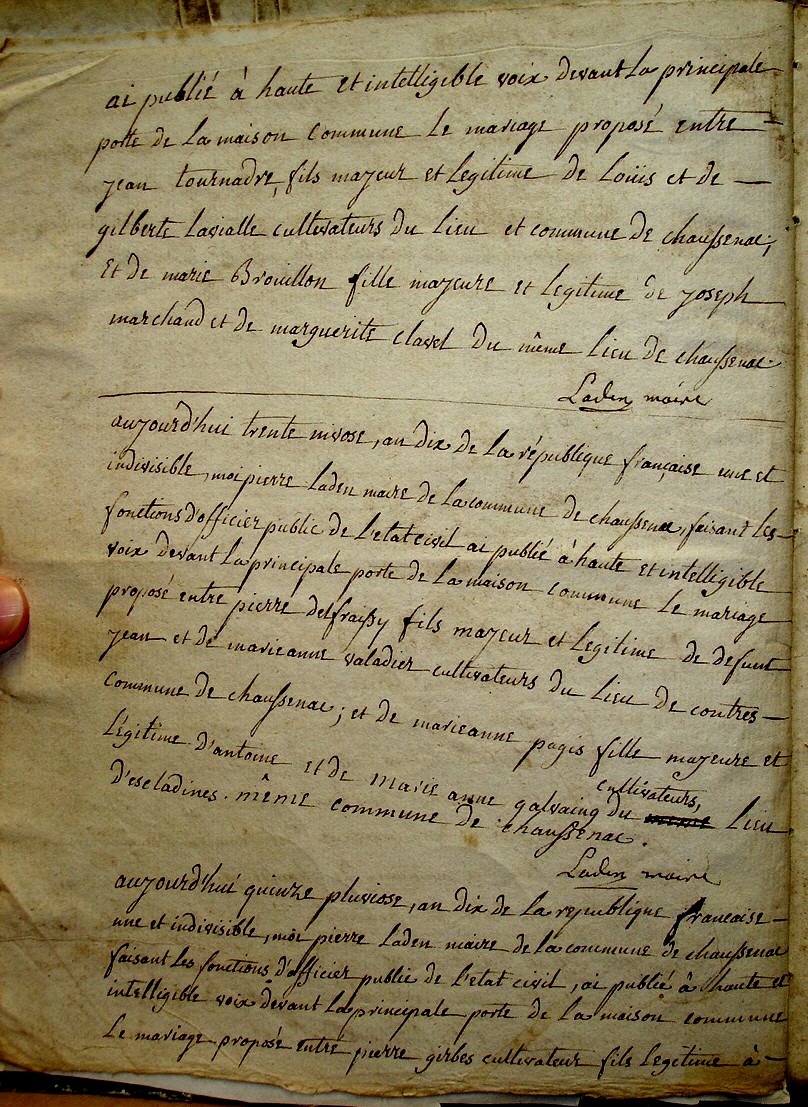 ai publié à haute et intelligible voix devant la principale
porte de la maison commune le mariage proposé entre
jean tournadre, fils majeur et legitime de Loüis et de —
gilberte lavialle cultivateurs du lieu et commune de chaussenac,
et de marie Brouillon fille majeure et legitime de joseph
marchand et de marguerite clavel du même lieu de chaussenac
Laden maire
aujourd'hui trente nivose, an dix de la république française une et
indivisible, moi pierre laden maire de la commune de chaussenac, faisant les
fonctions d'officier public de l'etat civil ai publié à haute et intelligible
voix devant la principale porte de la maison commune le mariage
proposé entre pierre delfraissy fils majeur et legitime de defunt
jean et de marieanne valadier cultivateurs du lieu de contres —
commune de chaussenac; et de marieanne pagis fille majeure et
légitime d'antoine et de marie anne galvaing cultivateurs, du même lieu
d'escladines. même commune de chaussenac.
Laden maire
aujourd'hui quinze pluviose, an dix de la republique francaise —
une et indivisible, moi pierre laden maire de la commune de chaussenac
faisant les fonctions d'officier public de l'etat civil, ai publié à haute et
intelligible voix devant la principale porte de la maison commune
le mariage proposé entre pierre girbes cultivateur fils legitime à —